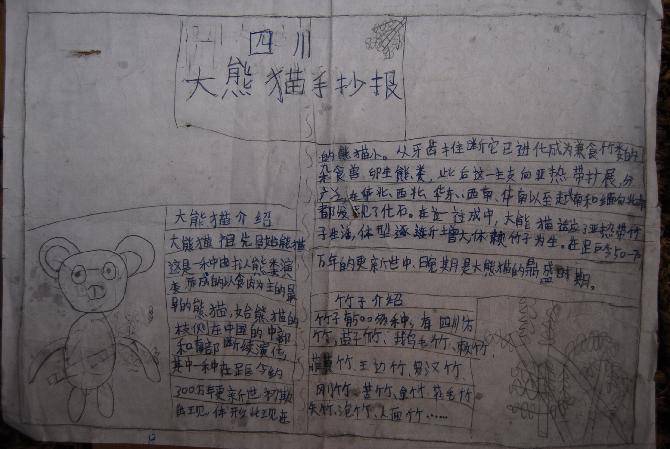 四川
大熊猫手抄报
大熊猫介绍
大熊猫祖先是始熊猫
这是一种由拟熊类演
变而成的以食肉为主的最
早的熊猫,始熊猫的
核侧在中国的中部
和南部断续演化,
其中一种在距今约
300万年更新世初期
出现,体形比现在
的熊猫小。从牙齿推断它已进化成为兼食竹类的
杂食兽,卵生熊类,此后这一主支向亚热带扩展,分
广泛,在华北、西北、华东、西南、华南以至越南和缅甸北部
都发现了化石。在这一过程中,大熊猫适应了亚热带竹
子生活,体型逐渐增大,依赖竹子为生。在距今50-70
万年的更新世中、晚期是大熊猫的鼎盛时期。
竹子介绍
竹子有500多种,有四川方
竹、
竹、王边竹、罗汉竹
刚竹、苦竹、
矢竹、泡竹、人面竹……